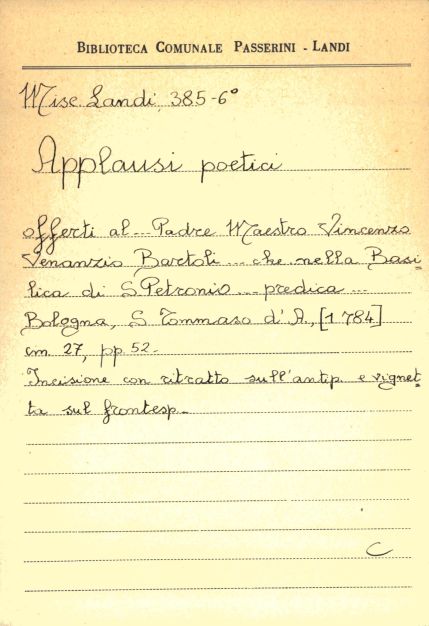 BIBLIOTECA COMUNALE PASSERINI - LANDI
Misc. Landi, 385-6°
Applausi poetici
offerti al ... Padre Maestro Vincenzo
Venanzio Bartoli ... che nella Basi-
lica di S. Petronio ... predica ...
Bologna, S. Tommaso d'A., [1784]
cm. 27, pp. 52.
Incisione con ritratto sull'antip. e vignet-
ta sul frontesp.
C